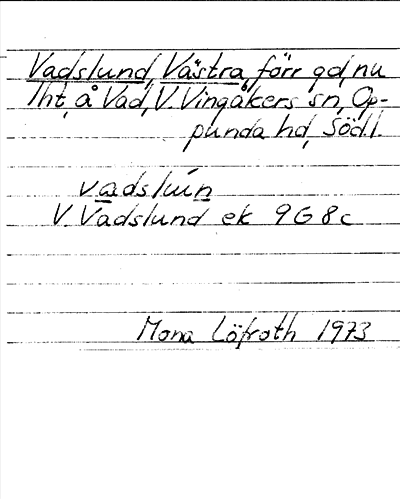 Vadslund, Västra, förr gd, nu
lht, å Vad, V. Vingåkers sn, Op-
punda hd, Södl.
vadslún
V. Vadslund ek 9G8c
Mona Löfroth 1973